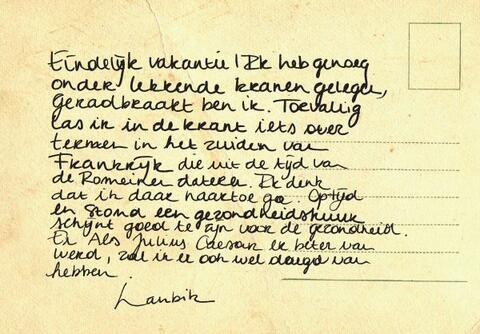 Eindelijk vakantie! Ik heb genoeg
onder lekkende kranen gelegen,
geradbraakt ben ik. Toevallig
las ik in de krant iets over
termen in het zuiden van
Frankrijk die uit de tijd van
de Romeinen dateren. Ik denk
dat ik daar naartoe ga. Op tijd
en stond een gezondheidskuur
schijnt goed te zijn voor de gezondheid.
En Als Julius Caesar er beter van
werd, zal ik er ook wel deugd van
hebben.
Lambik